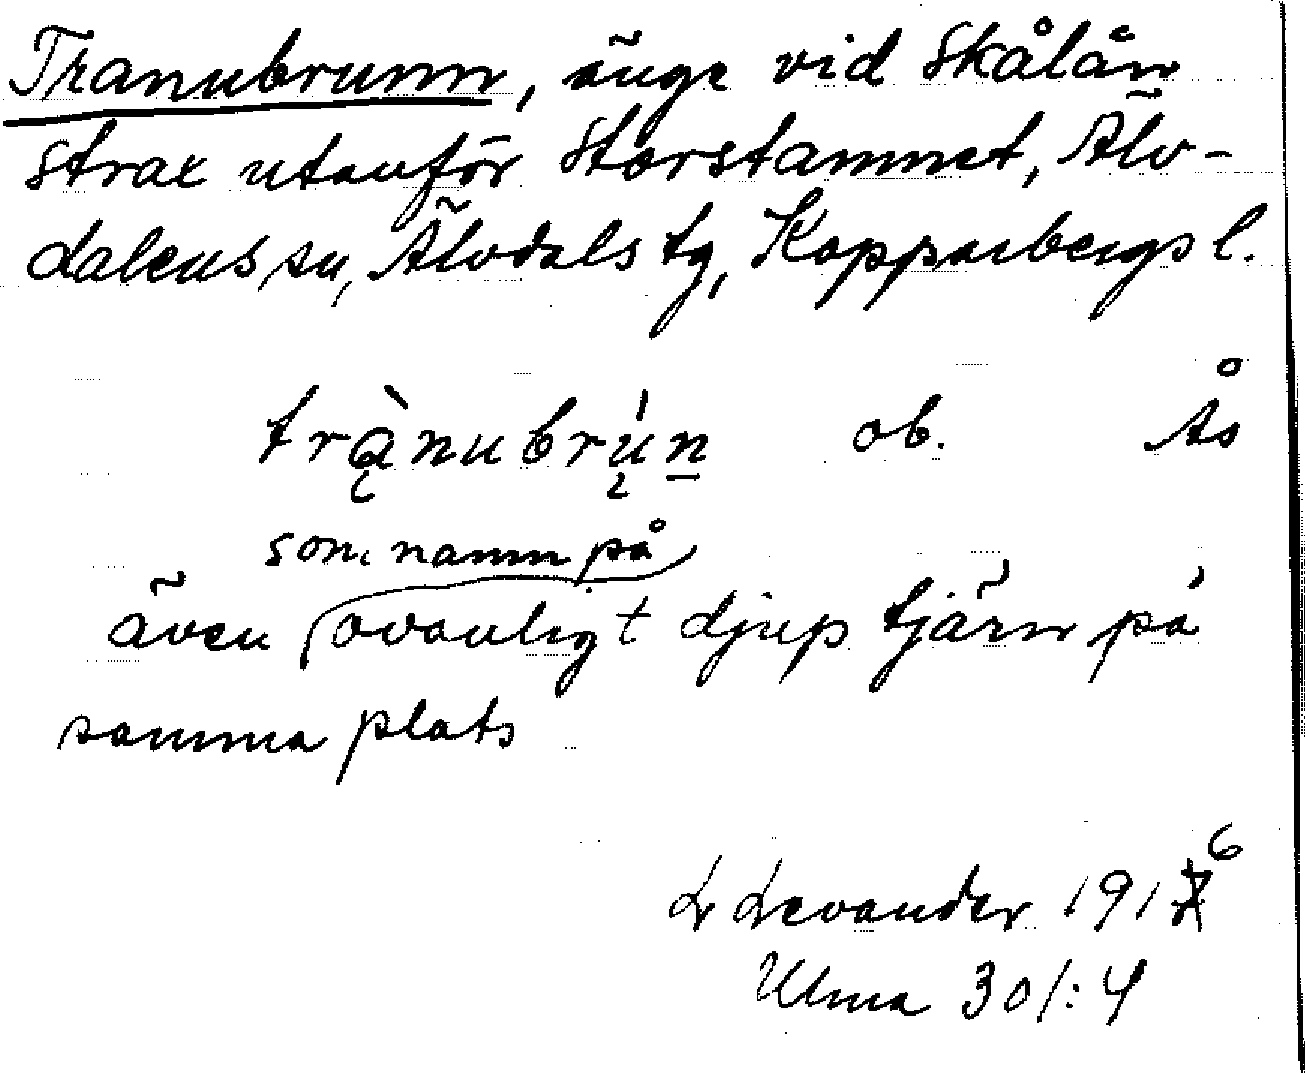 Tranubrunn, änge vid Skålån
strax utanför Storstammet, Älv-
dalens sn, Älvdals tg, Kopparbergs l.
trànubrún ob. Ås
som namn på
även ovanligt djup tjärn på
samma plats
L Levander 1916
Ulma 301:4